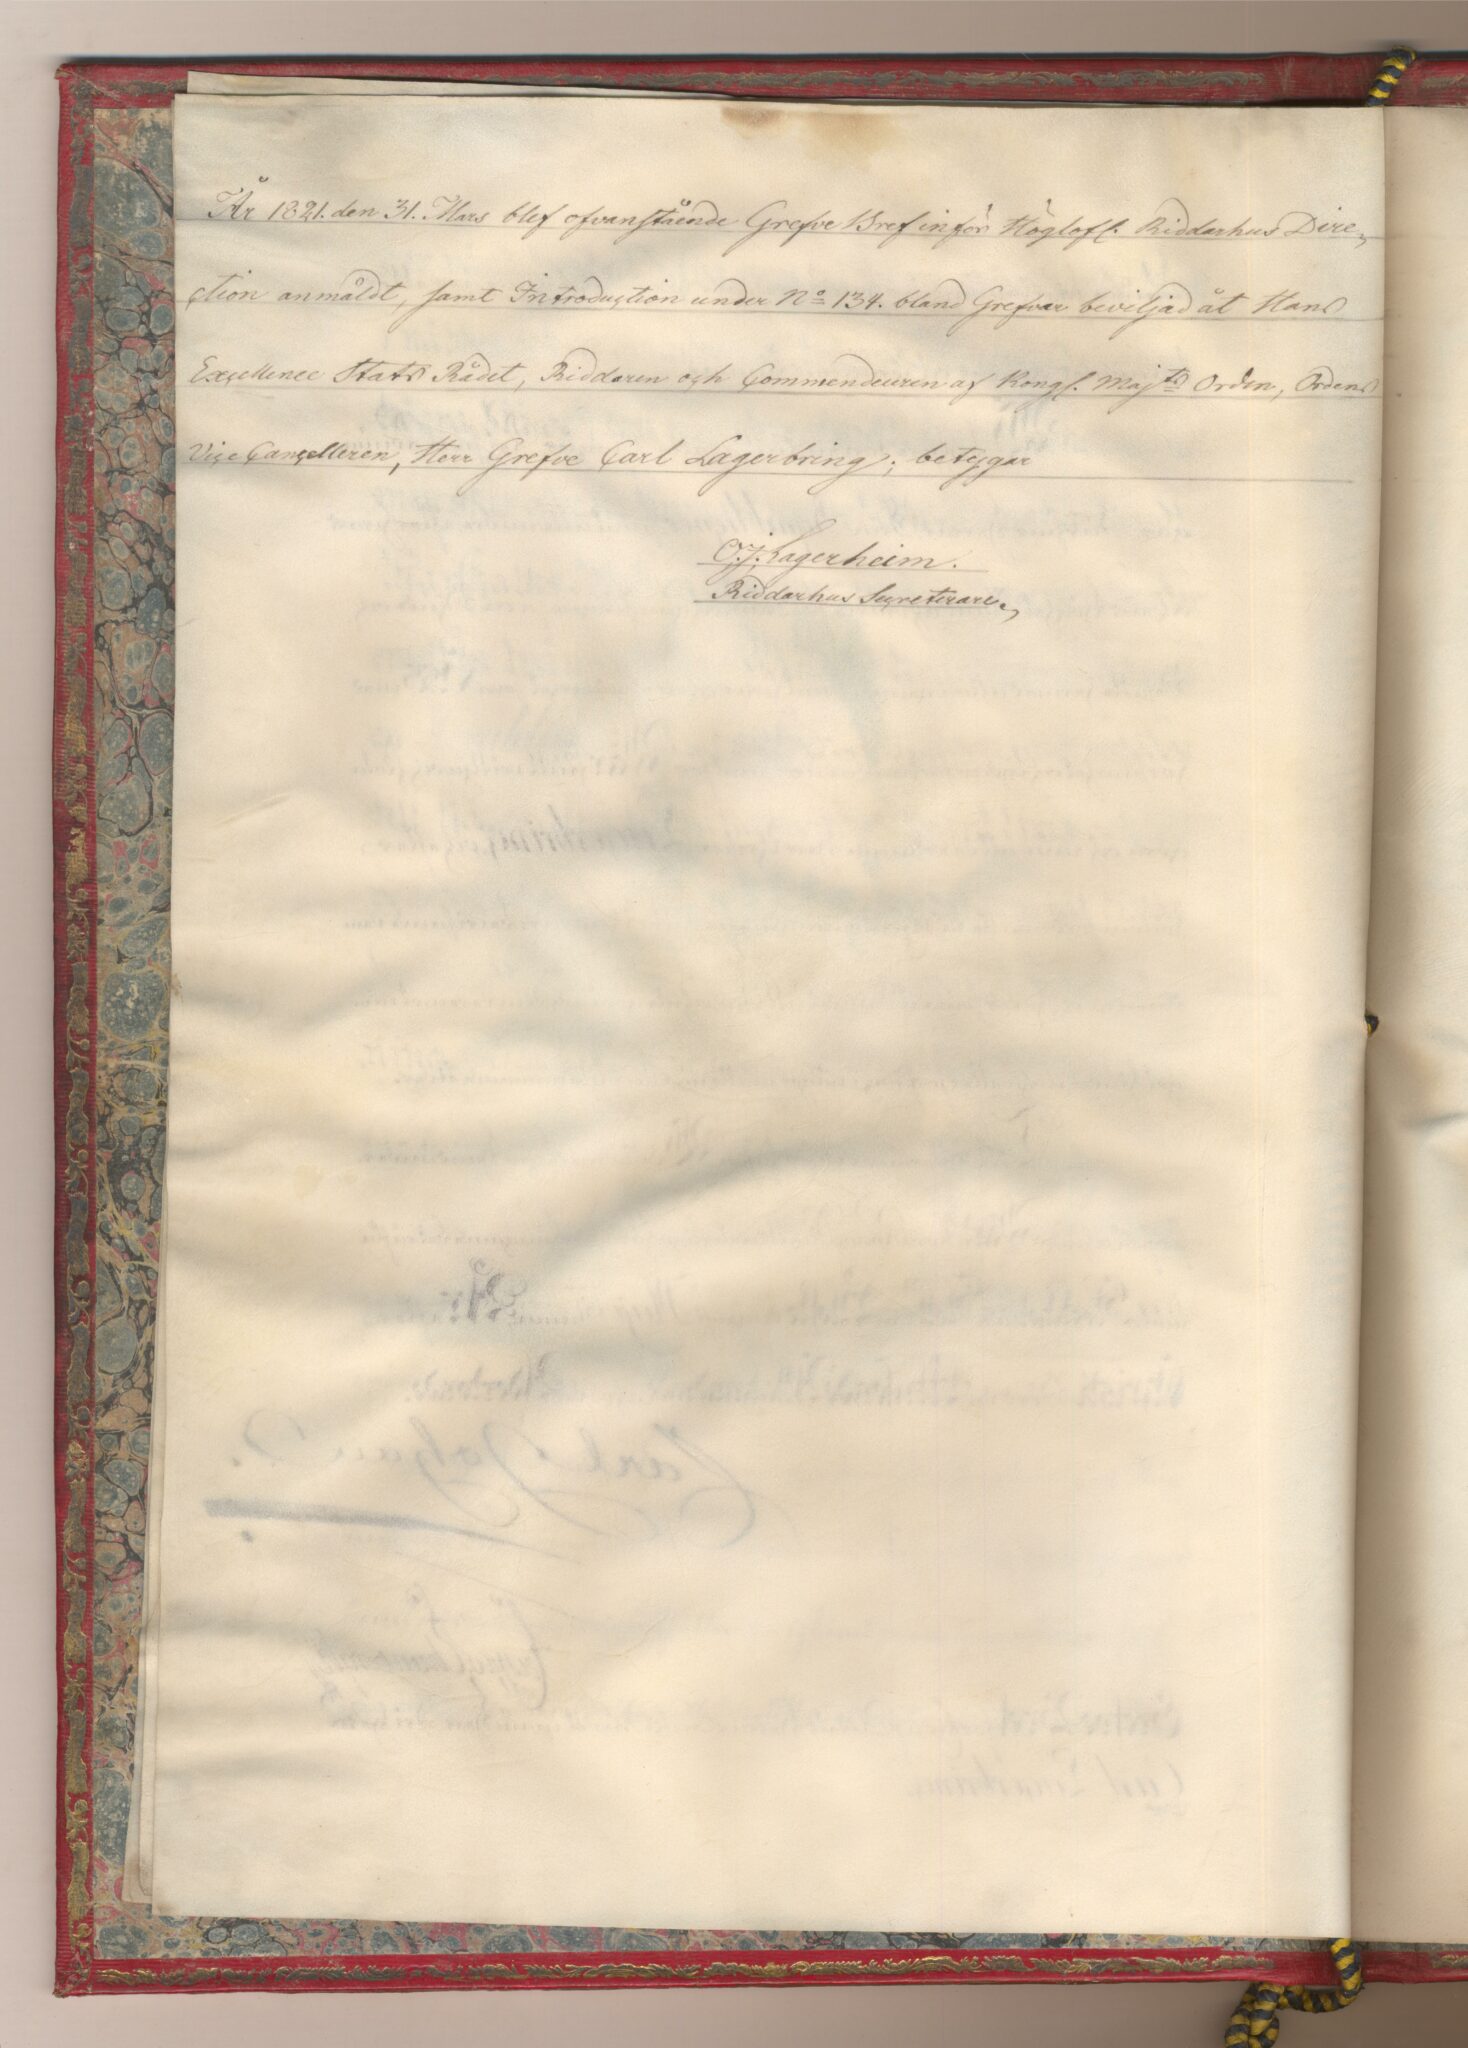 År 1821. den 31. Mars blef ofvanstående Grefve Bref inför Höglofl. Riddarhus Dire-
ction anmäldt, samt Introduction under No 134. bland Grefvar beviljad åt Hans
Excellence Stats Rådet, Riddaren och Commendeuren af Kongl. Majts Orden, Ordens
Vice Cancelleren, Herr Grefve Carl Lagerbring; betygar
O. J. Lagerheim.
Riddarhus Secreterare